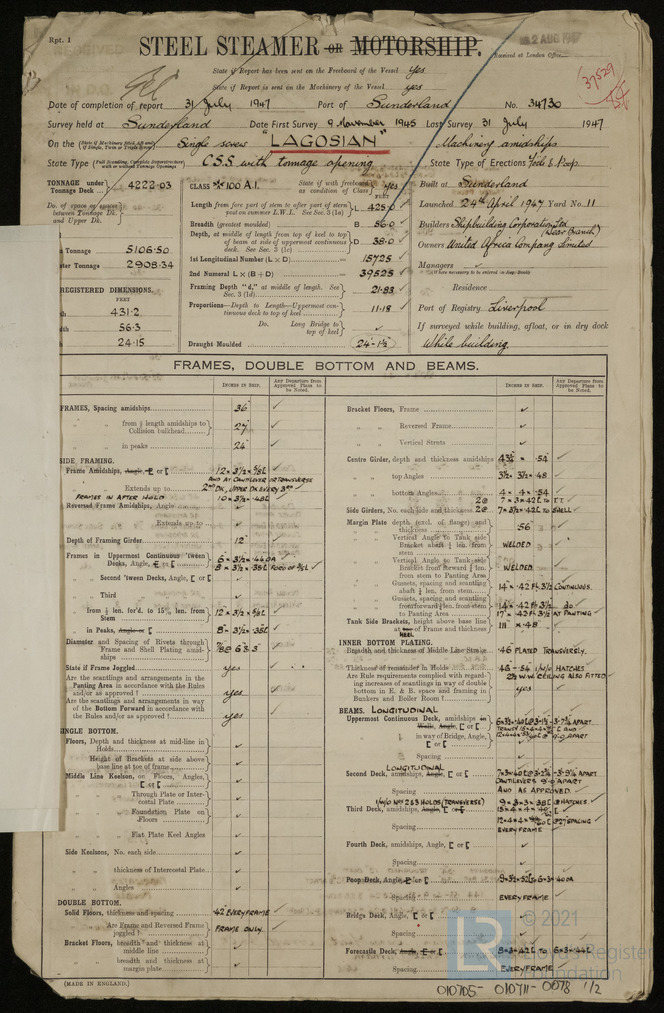 Rpt. 1
STEEL STEAMER or MOTORSHIP.
2 AUG 1947
Received at London Office
State if Report has been sent on the Freeboard of the Vessel yes
State if Report is sent on the Machinery of the Vessel yes
37529
Date of completion of report 31 July 1947 Port of Sunderland No. 34730
Survey held at Sunderland Date First Survey 9 November 1945 Last Survey 31 July 1947
On the Single screw "LAGOSIAN" Machinery amidships
State Type C.S.S. with tonnage opening State Type of Erections Fo'c'le & Poop.
TONNAGE under Tonnage Deck 4222.03
Do. of space or spaces between Tonnage Dk. and Upper Dk.
Tonnage 5106.50
Tonnage 2908.34
REGISTERED DIMENSIONS.
FEET
431.2
56.3
24.15
CLASS 100 A.1. State if with freeboard as condition of Class yes
FEET
Length from fore part of stem to after part of stern post on summer L.W.L. See Sec. 3 (1a) L 425.0
Breadth (greatest moulded) B 56.0
Depth, at middle of length, from top of keel to top of beam at side of uppermost continuous deck. See Sec. 3 (1c) D 38.0
1st Longitudinal Number (L × D) = 15725
2nd Numeral L × (B + D) = 39525
Framing Depth "d," at middle of length. See Sec. 3 (1d) 21.83
Proportions—Depth to Length—Uppermost continuous deck to top of keel 11.18
Do. Long Bridge to top of keel
Draught Moulded 24-1½
Built at Sunderland
Launched 24th April 1947 Yard No. 11
Builders Shipbuilding Corporation Ltd (Wear Branch)
Owners United Africa Company Limited
Managers
Residence
Port of Registry Liverpool
If surveyed while building, afloat, or in dry dock
While building.
FRAMES, DOUBLE BOTTOM AND BEAMS.
INCHES IN SHIP.
Any Departure from Approved Plans to be Noted.
INCHES IN SHIP.
Any Departure from Approved Plans to be Noted.
FRAMES, Spacing amidships 36
from ⅕ length amidships to Collision bulkhead 27
in peaks 24
SIDE FRAMING.
Frame Amidships, Angle, [ or [
Extends up to
FRAMES IN AFTER HOLD
Reversed Frame Amidships, Angle
Extends up to
Depth of Framing Girder 12
Frames in Uppermost Continuous 'tween Decks, Angle, [ or [
Second 'tween Decks, Angle, [ or [
Third
from ⅕ len. for'd. to 15% len. from Stem
in Peaks, Angle or [
Diameter and Spacing of Rivets through Frame and Shell Plating amidships
State if Frame Joggled yes
Are the scantlings and arrangements in the Panting Area in accordance with the Rules and/or as approved? yes
Are the scantlings and arrangements in way of the Bottom Forward in accordance with the Rules and/or as approved? yes
SINGLE BOTTOM.
Floors, Depth and thickness at mid-line in Holds
Height of Brackets at side above base line at toe of frame
Middle Line Keelson, on Floors, Angles, [ or [
Through Plate or Intercostal Plate
Foundation Plate on Floors
Flat Plate Keel Angles
Side Keelsons, No. each side
thickness of Intercostal Plate
Angles
DOUBLE BOTTOM.
Solid Floors, thickness and spacing .42 EVERY FRAME
Are Frame and Reversed Frame joggled? FRAME ONLY.
Bracket Floors, breadth and thickness at middle line
breadth and thickness at margin plate
Bracket Floors, Frame
Reversed Frame
Vertical Struts
Centre Girder, depth and thickness amidships 43¾ × .54
top Angles 3½ × 3½ × .48
bottom Angles 4 × 4 × .54
Side Girders, No. each side and thickness
Margin Plate depth (excl. of flange) and thickness 56
Vertical Angle to Tank side Bracket abaft ¼ len. from stem WELDED
Vertical Angle to Tank side Bracket from forward ¼ len. from stem to Panting Area WELDED
Gussets, spacing and scantling abaft ¼ len. from stem
Gussets, spacing and scantling from forward ¼ len. from stem to Panting Area
Tank Side Brackets, height above base line at toe of Frame and thickness
HEEL
INNER BOTTOM PLATING.
Breadth and thickness of Middle Line Strake .46 PLATED TRANSVERSELY.
Thickness of remainder in Holds .46 - .54 I/W/O HATCHES
2½ W.W. CEILING ALSO FITTED
Are Rule requirements complied with regarding increases of scantlings in way of double bottom in E. & B. space and framing in Bunkers and Boiler Room? yes
BEAMS. LONGITUDINAL
Uppermost Continuous Deck, amidships
in way of Bridge, Angle, [ or [
Spacing
LONGITUDINAL
Second Deck, amidships, Angle, [ or [
Spacing AND AS APPROVED.
I/W/O Nos 2&3 HOLDS (TRANSVERSE)
Third Deck, amidships, Angle, [ or [
Spacing EVERY FRAME
Fourth Deck, amidships, Angle, [ or [
Spacing
Poop Deck, Angle, [ or [
Spacing EVERY FRAME
Bridge Deck, Angle, [ or [
Spacing
Forecastle Deck, Angle, [ or [
Spacing EVERY FRAME
(MADE IN ENGLAND.)
010705 - 010711 - 0078 1/2
LR
© 2021
Lloyd's Register
Foundation